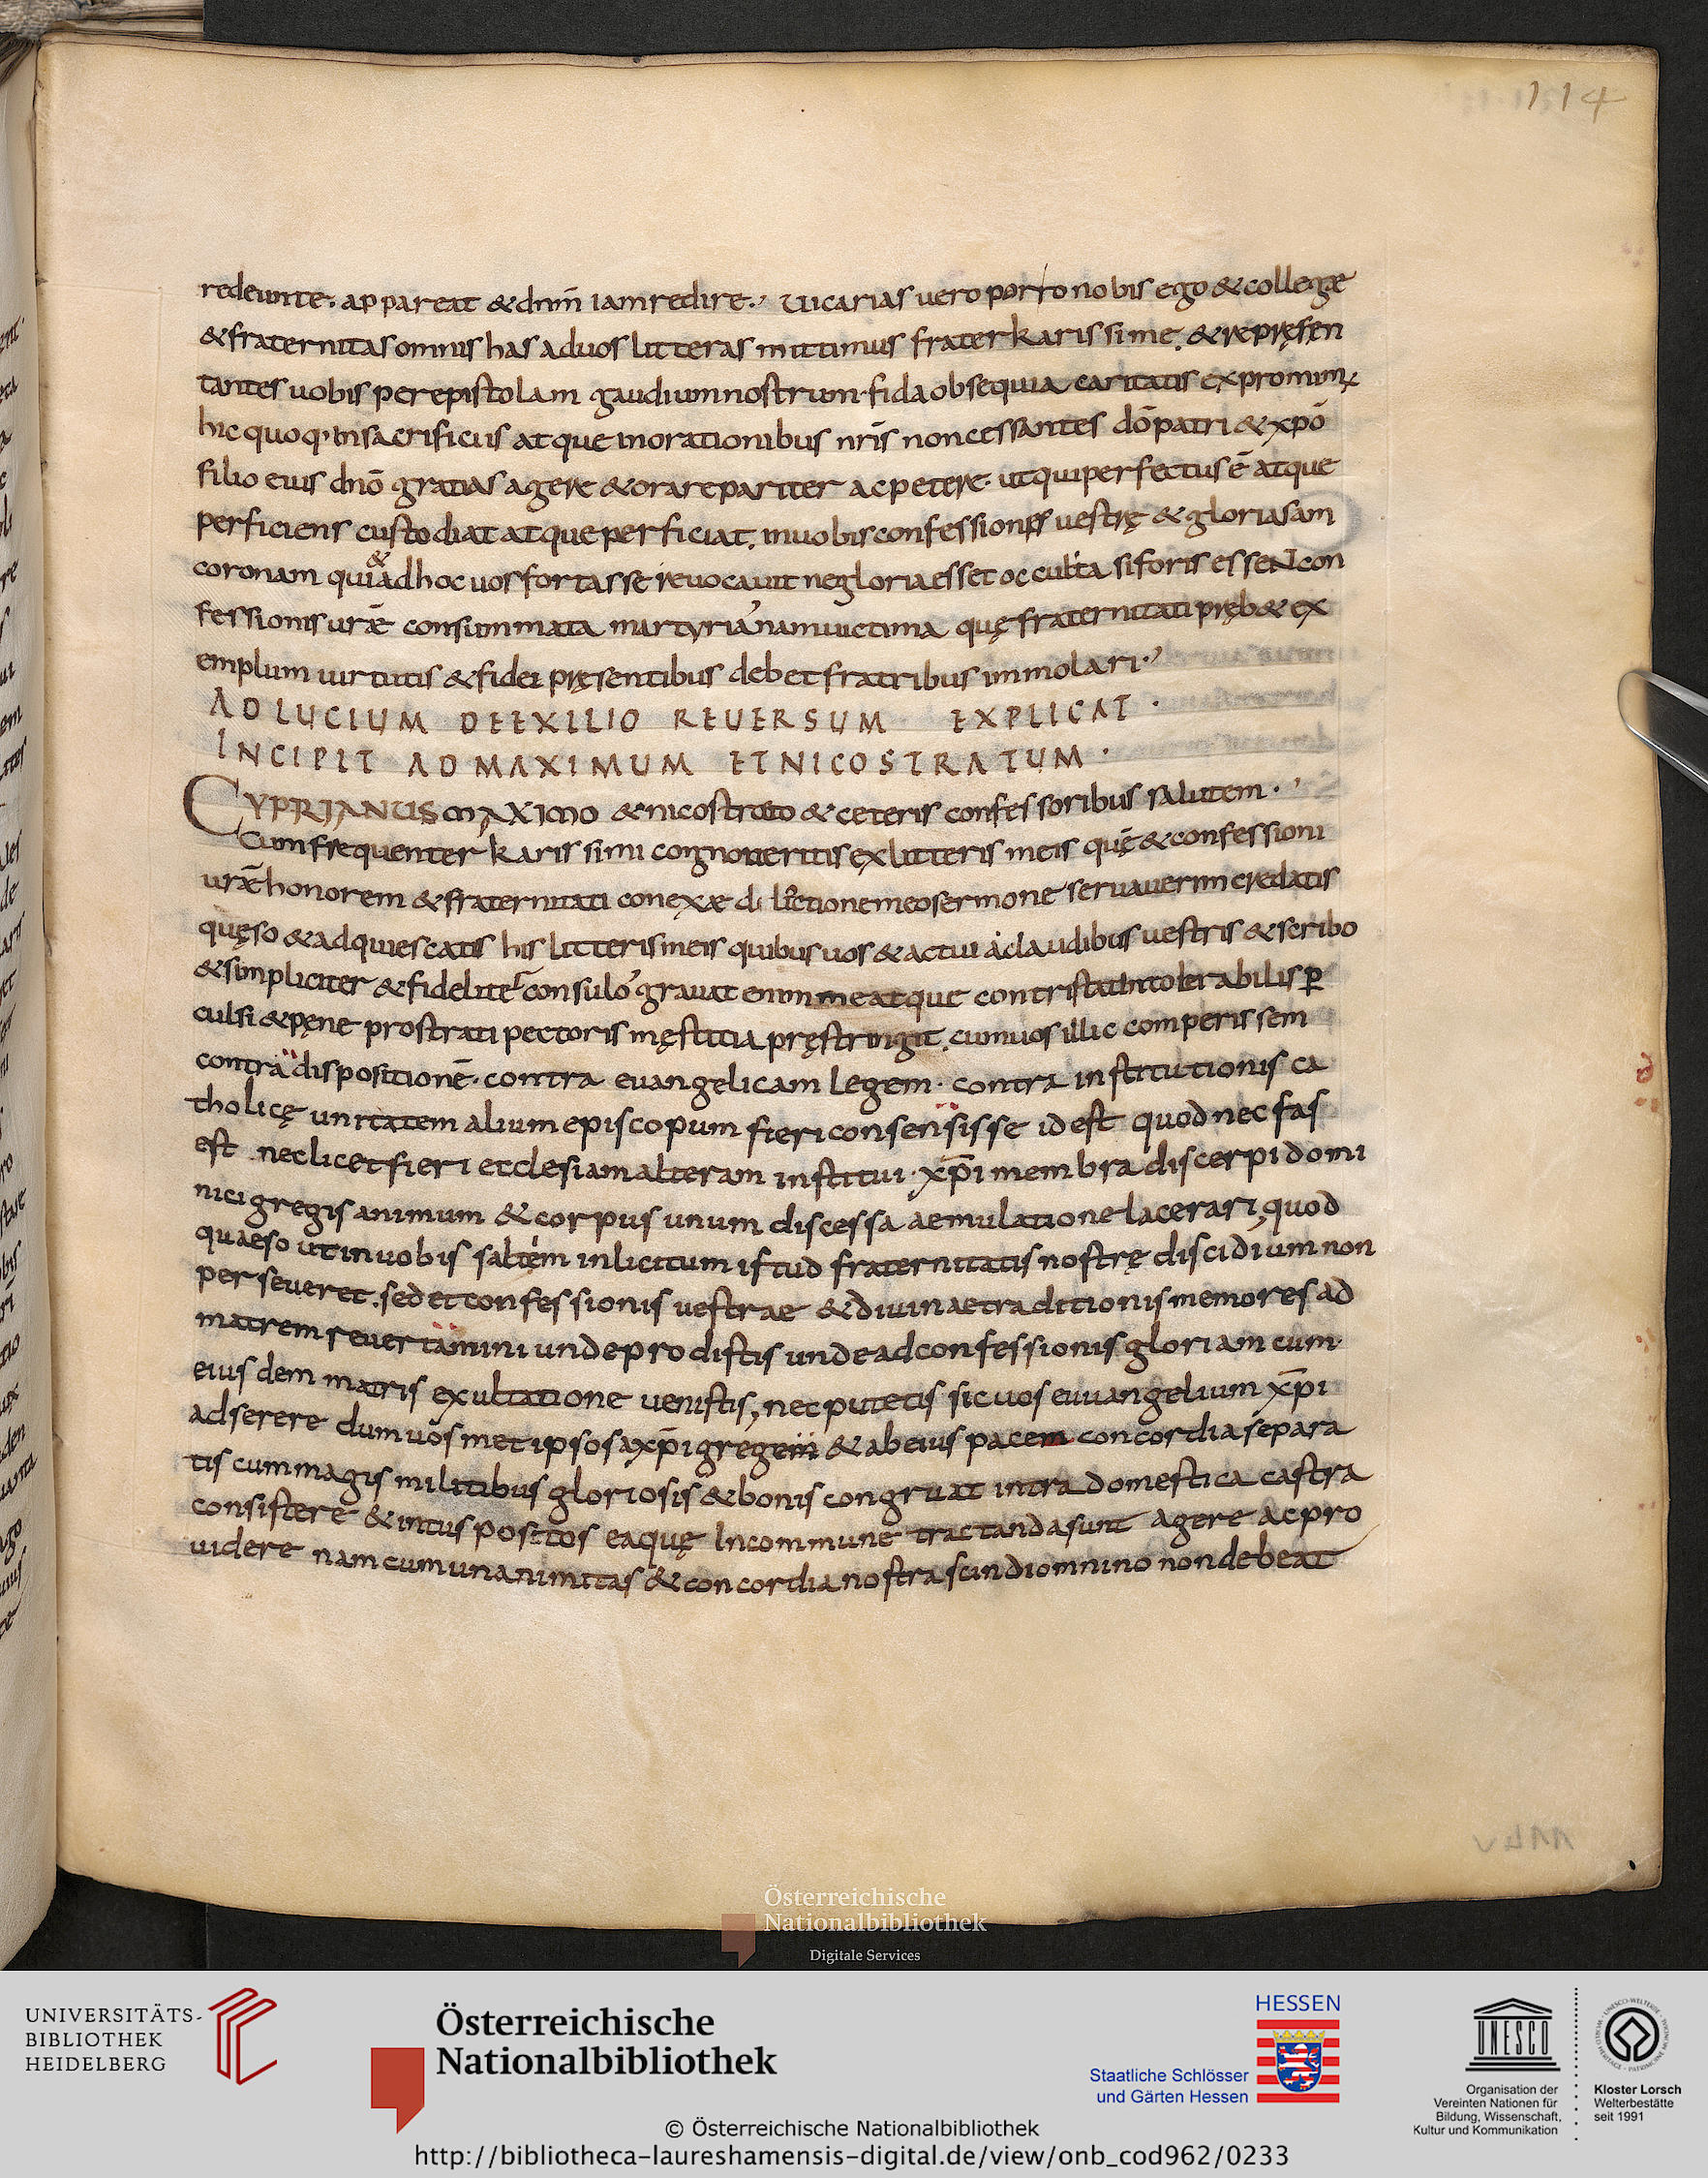 114
redeunte. appareat & dnm̄ iam redire. Uicarias uero porro nobis ego & collegæ
& fraternitas omnis has ad uos litteras mittimus frater karissime. & repręsen
tantes uobis per epistolam gaudium nostrum. fida obsequia caritatis expromimꝰ
hic quoq; in sacrificiis atque in orationibus nr̄is non cessantes dō patri & xp̄o
filio eius dnō gratias agere & orare pariter ac petere. ut qui perfectus ē atque
perficiens custodiat atque perficiat. in uobis confessionis uestrę & gloriasam
&
coronam quia ad hoc uos fortasse reuocauit ne gloria esset occulta si foris esseNt con
fessionis urǣ consummata martyria nam uictima quę fraternitati pręb& ex
emplum uirtutis & fidei pręsentibus debet fratribus immolari.
AD LUCIUM DE EXILIO REUERSUM EXPLICAT.
INCIPIT AD MAXIMUM ET NICOSTRATUM.
CYPRIANUS MAXIMO & nicostrato & ceteris confessoribus salutem.
Cum frequenter karissimi cognoueritis ex litteris meis quę & confessioni
urǣ honorem & fraternitati conexæ dilectione meo sermone seruauerim credatis
quęso & adquiescatis his litteris meis quibus uos & actui ac laudibus uestris & scribo
& simpliciter & fideliter consulo grauat enim me atque contristat intolerabilis ꝑ
culsi & pęne prostrati pectoris męstitia pręstringit. cum uos illic comperissem
contra dispositionē. contra euangelicam legem. contra institutionis ca
tholicę unitatem alium episcopum fieri consensisse id est quod nec fas
est nec licet fieri ecclesiam alteram institui. xp̄i membra discerpi domi
nici gregis animum & corpus unum discessa aemulatione lacerari, quod
quaeso ut in uobis saltem inlicitum istud fraternitatis nostrę discidium non
perseueret. sed et confessionis uestrae & diuinae traditionis memores ad
matrem reuertamini unde prodistis unde ad confessionis gloriam cum
eiusdem matris exultatione uenistis, nec putetis sic uos euuangelium xp̄i
adserere dum uosmet ipsos a xp̄i gregem & ab eius pacem concordia separa
tis cum magis militibus gloriosis & bonis congruat intra domestica castra
consistere & intus positos eaquę In commune tractanda sunt agere ac pro
uidere nam cum unanimitas & concordia nostra scindi omnino non debeat
114v
Österreichische
Nationalbibliothek
Digitale Services
UNIVERSITÄTS-
BIBLIOTHEK
HEIDELBERG
Österreichische
Nationalbibliothek
HESSEN
Staatliche Schlösser
und Gärten Hessen
UNESCO
Organisation der
Vereinten Nationen für
Bildung, Wissenschaft,
Kultur und Kommunikation
Kloster Lorsch
Welterbestätte
seit 1991
© Österreichische Nationalbibliothek
http://bibliotheca-laureshamensis-digital.de/view/onb_cod962/0233